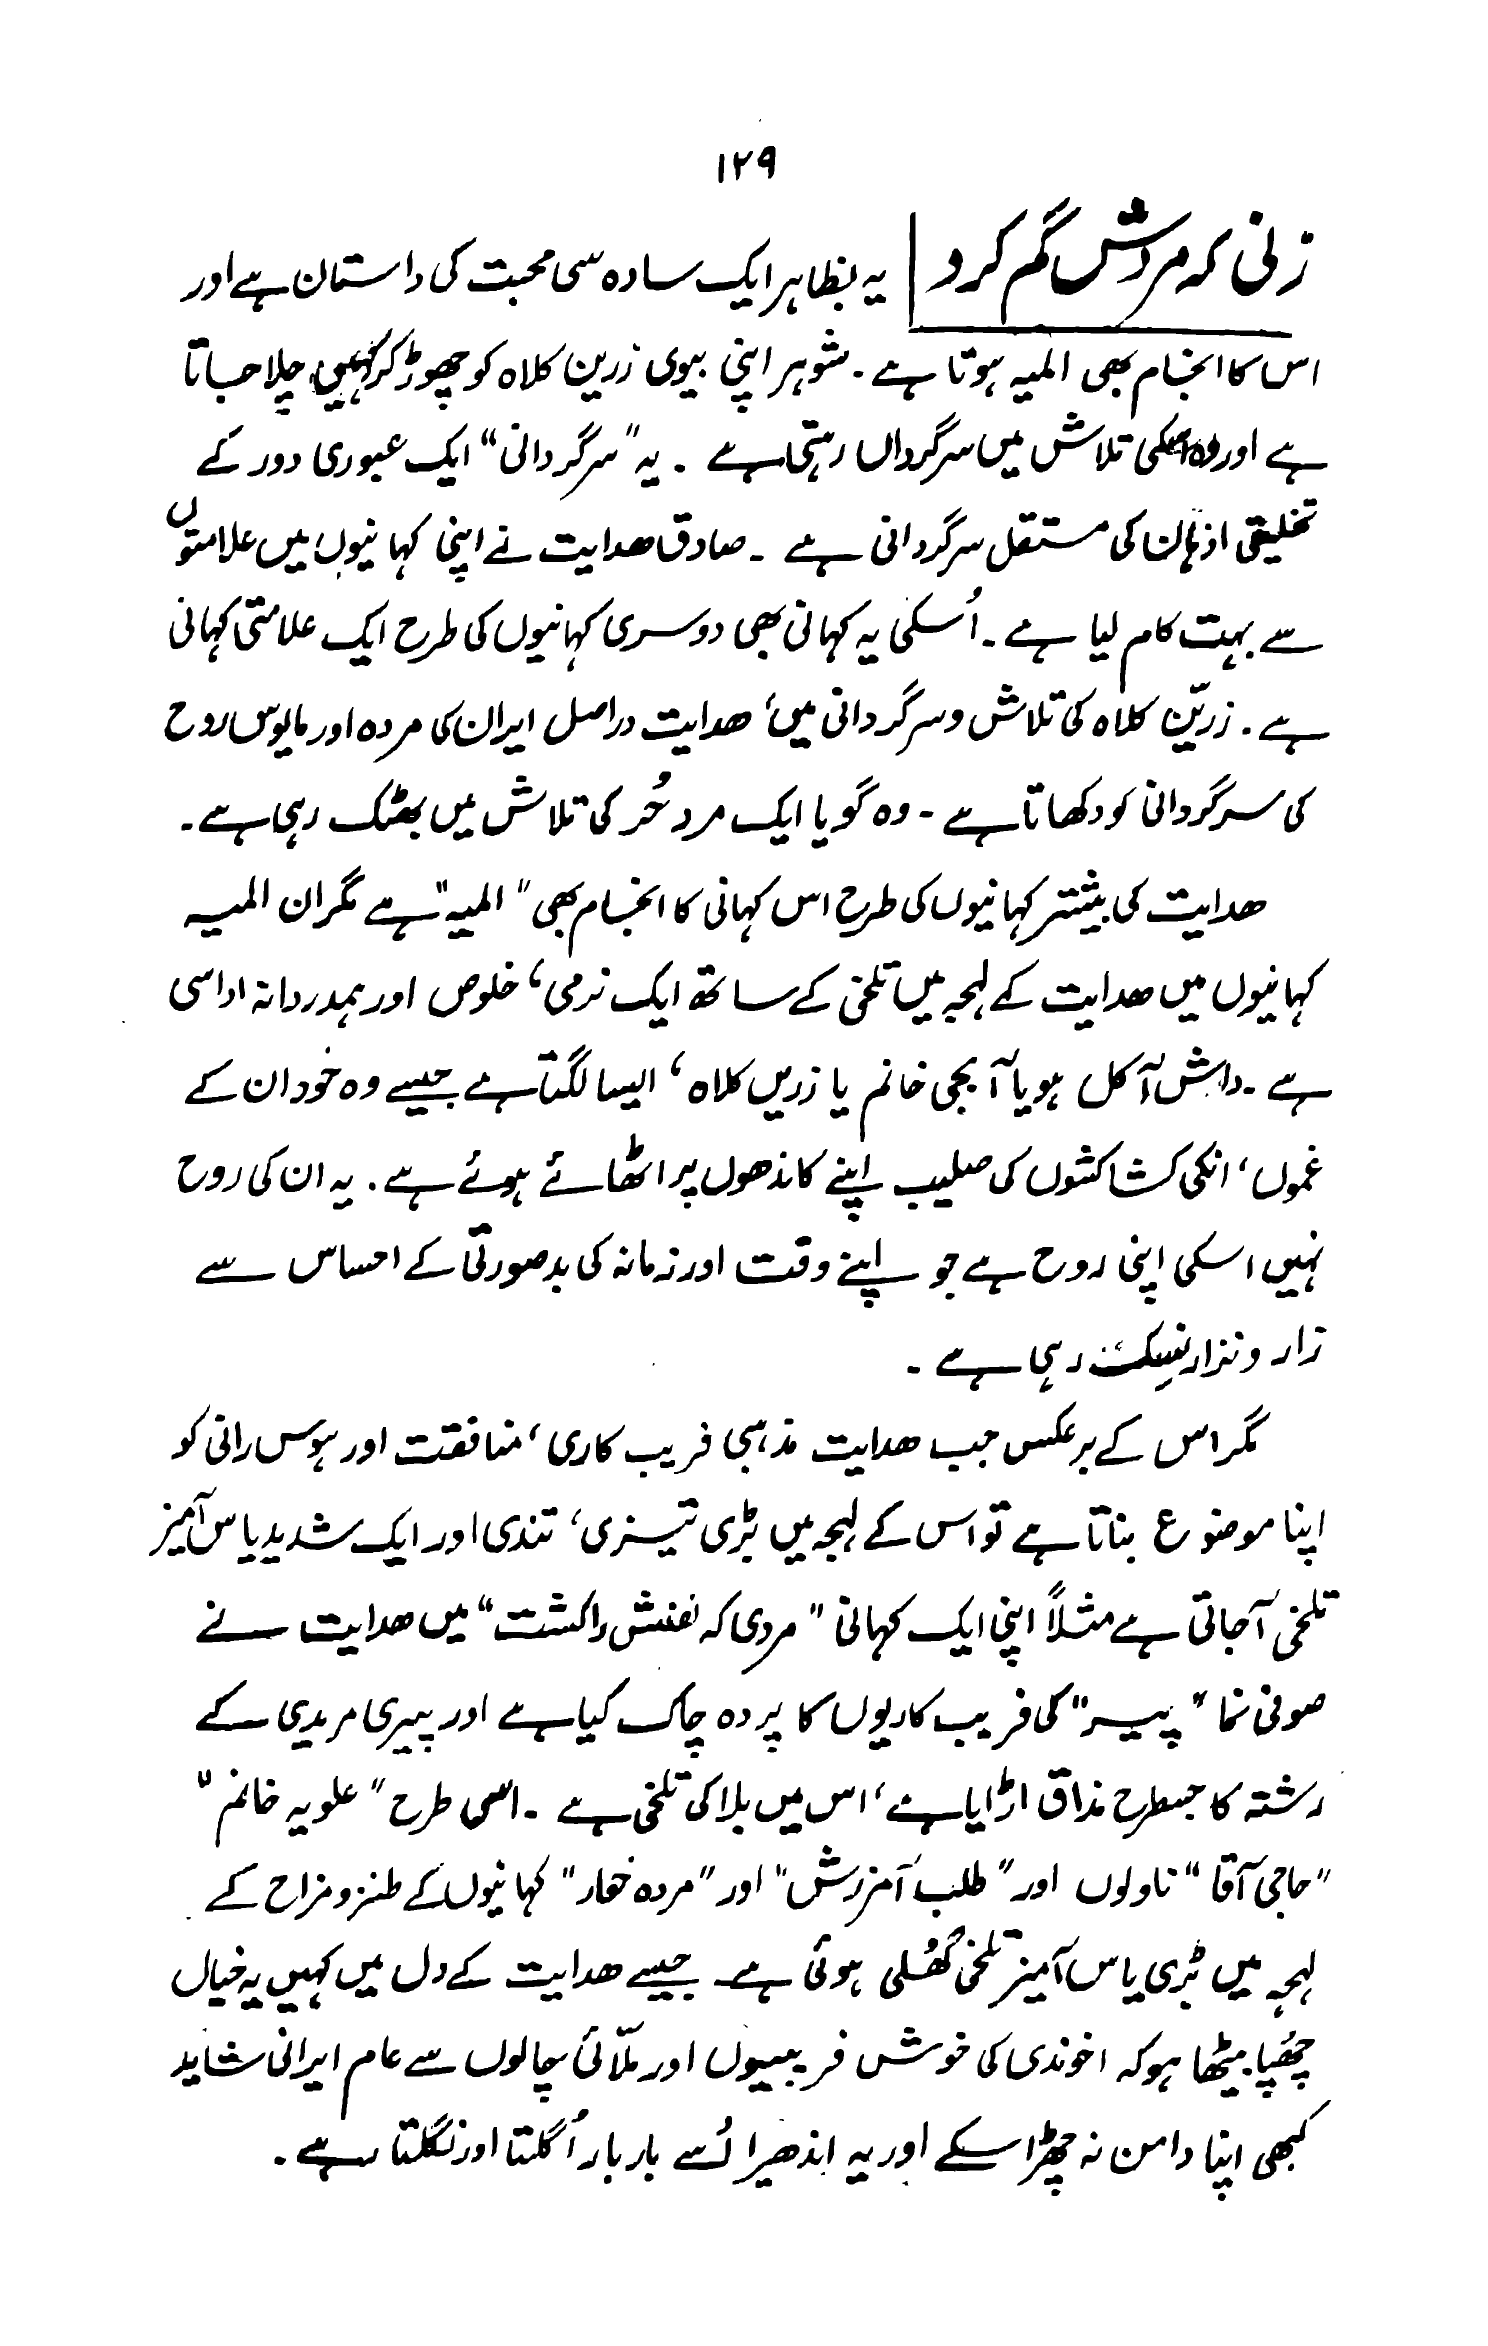 ۱۲۹
زنی کہ مردش گم کرد | یہ بظاہر ایک سادہ سی محبت کی داستان ہے اور
اس کا انجام بھی المیہ ہوتا ہے ۔ شوہر اپنی بیوی زرین کلاہ کو چھوڑ کر کہیں چلا جاتا
ہے اور وہ اسکی تلاش میں سرگرداں رہتی ہے ۔ یہ "سرگردانی" ایک عبوری دور کے
تخلیقی اذہان کی مستقل سرگردانی ہے ۔ صادق ھدایت نے اپنی کہانیوں میں علامتوں
سے بہت کام لیا ہے ۔ اُسکی یہ کہانی بھی دوسری کہانیوں کی طرح ایک علامتی کہانی
ہے ۔ زرّین کلاہ کی تلاش و سرگردانی میں، ھدایت دراصل ایران کی مردہ اور مایوس روح
کی سرگردانی کو دکھاتا ہے ۔ وہ گویا ایک مرد حُر کی تلاش میں بھٹک رہی ہے ۔
ھدایت کی بیشتر کہانیوں کی طرح اس کہانی کا انجام بھی "المیہ" ہے مگر ان المیہ
کہانیوں میں ھدایت کے لہجہ میں تلخی کے ساتھ ایک نرمی، خلوص اور ہمدردانہ اداسی
ہے ۔ داش آکل ہو یا آبجی خانم یا زریں کلاہ، ایسا لگتا ہے جیسے وہ خود ان کے
غموں، انکی کشاکشوں کی صلیب اپنے کاندھوں پر اٹھائے ہوئے ہے ۔ یہ ان کی روح
نہیں اسکی اپنی روح ہے جو اپنے وقت اور زمانہ کی بدصورتی کے احساس سے
زار و نزار سسک رہی ہے ۔
مگر اس کے برعکس جب ھدایت مذہبی فریب کاری، منافقت اور ہوس رانی کو
اپنا موضوع بناتا ہے تو اس کے لہجہ میں بڑی تیزی، تندی اور ایک شدید یاس آمیز
تلخی آجاتی ہے مثلاً اپنی ایک کہانی "مردی کہ نفسش را کشت" میں ھدایت نے
صوفی نما "پیر" کی فریب کاریوں کا پردہ چاک کیا ہے اور پیری مریدی کے
رشتہ کا جسطرح مذاق اڑایا ہے، اس میں بلا کی تلخی ہے ۔ اسی طرح "علویہ خانم"
"حاجی آقا" ناولوں اور "طلب آمرزش" اور "مردہ خوار" کہانیوں کے طنز و مزاح کے
لہجہ میں بڑی یاس آمیز تلخی گھُلی ہوئی ہے جیسے ھدایت کے دل میں کہیں یہ خیال
چھُپا بیٹھا ہو کہ اخوندی کی خوش فریبیوں اور ملّائی چالوں سے عام ایرانی شاید
کبھی اپنا دامن نہ چھڑا سکے اور یہ اندھیرا اُسے بار بار اُگلتا اور نگلتا رہے ۔